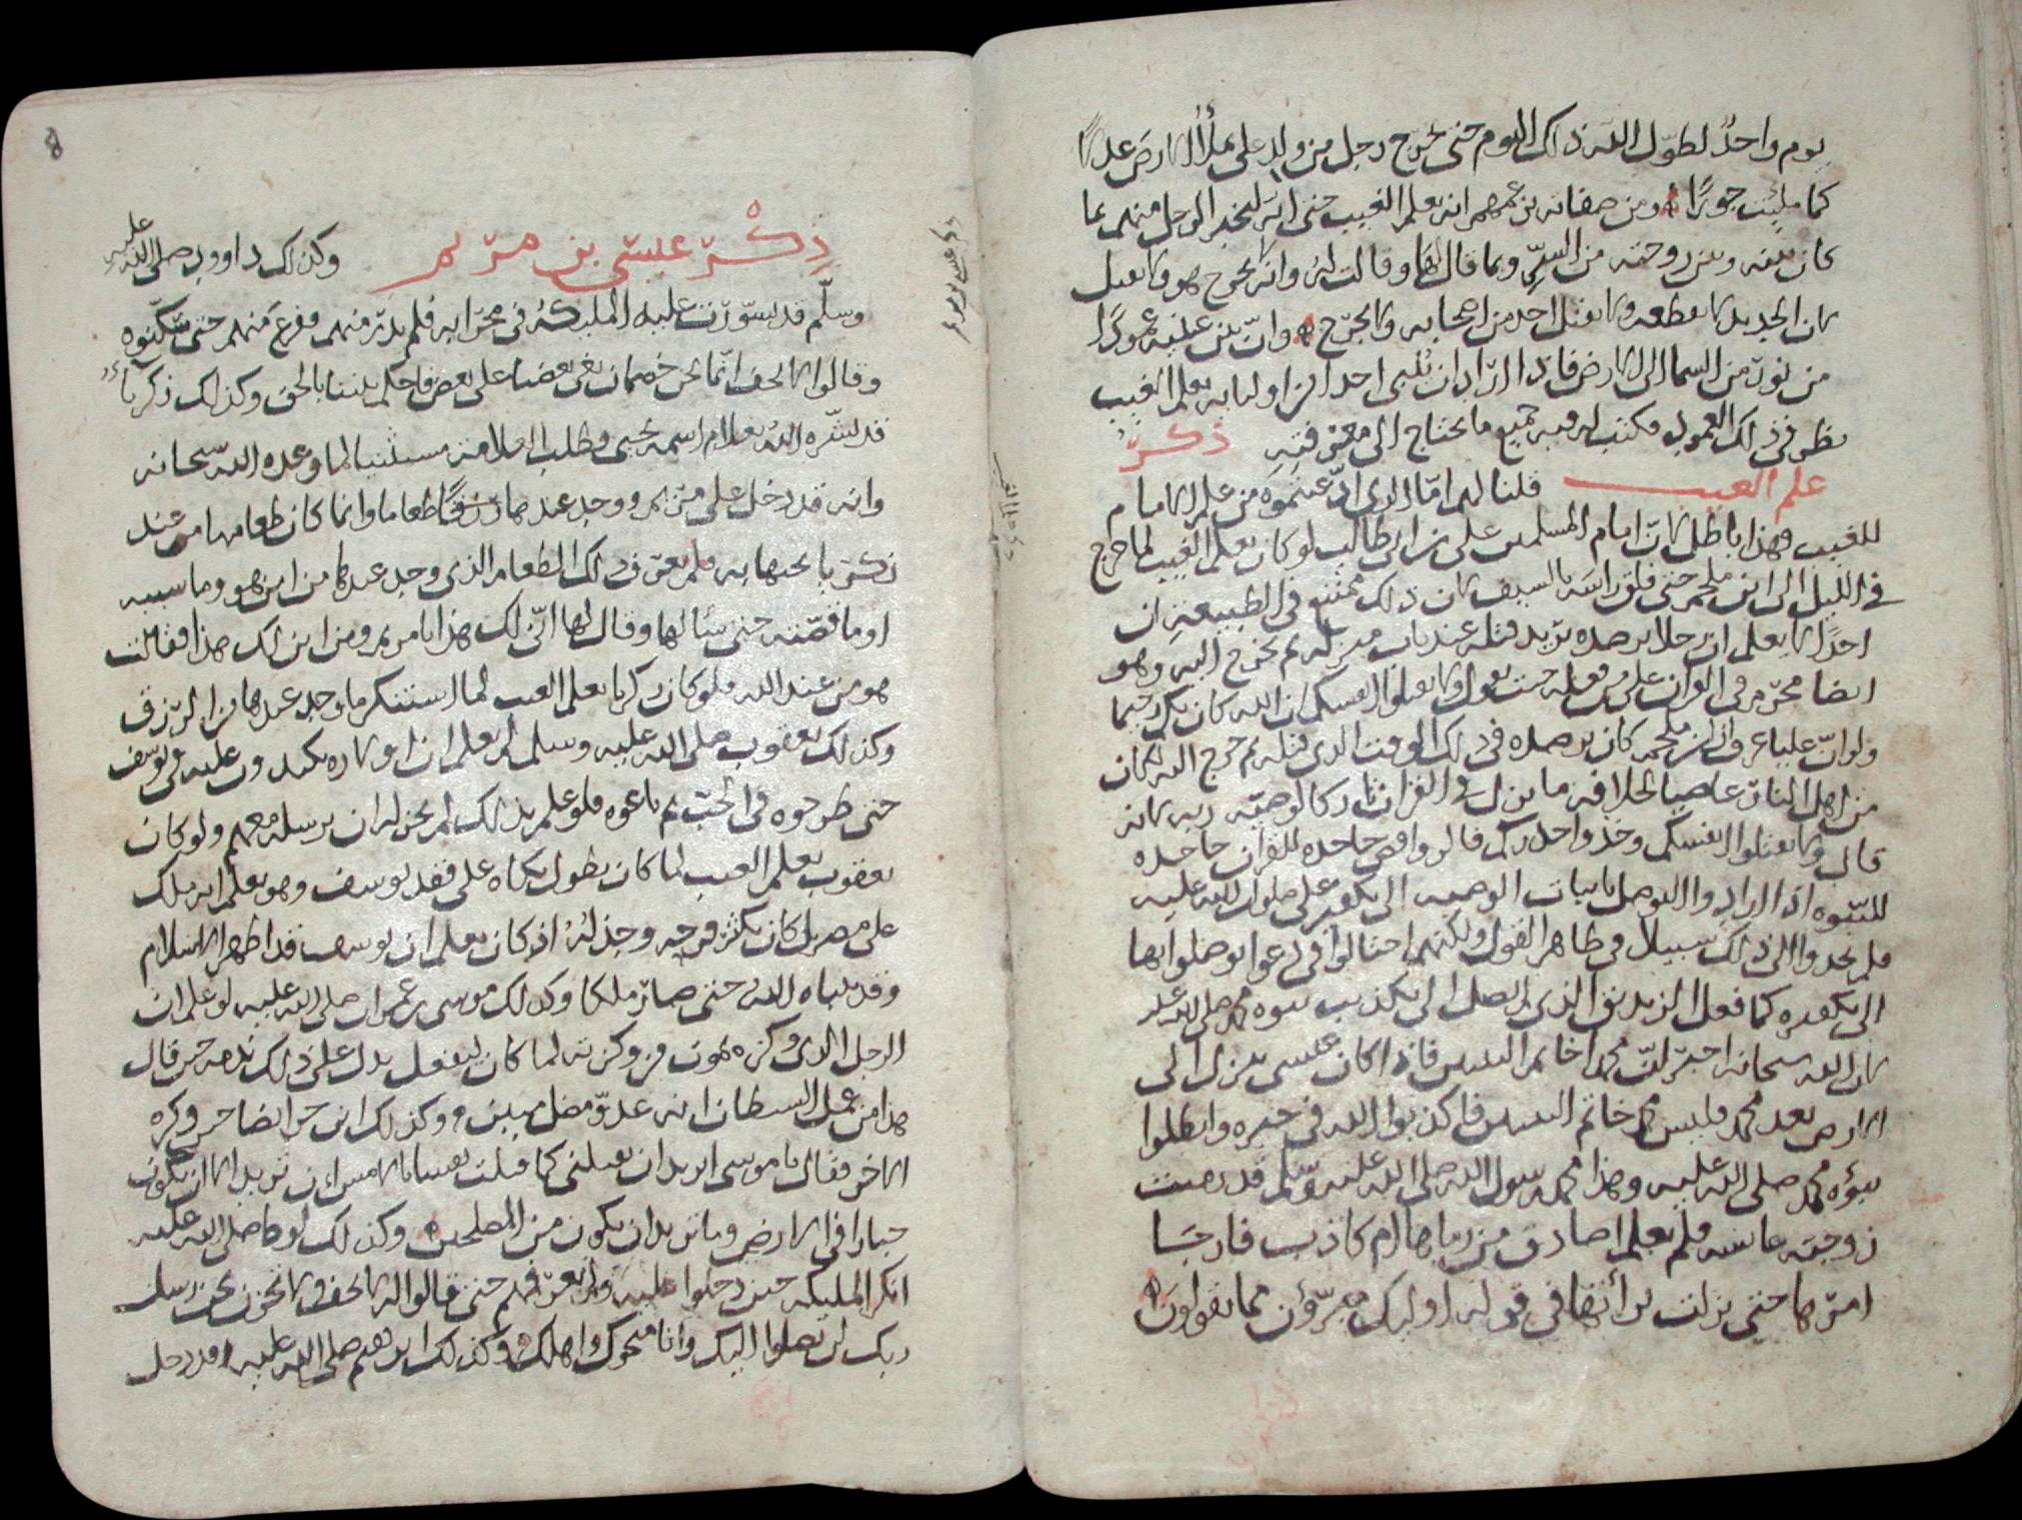 يوم واحدٌ لطوّل الله ذلك اليوم حتى يخرج رجل من ولد علي يملأ الارض عدلًا
كما ملئت جورًا ومن صفاته بزعمهم انه يعلم الغيب حتى انه ليخبر الرجل منهم بما
كان بينه وبين زوجته من السرّ وبما قال لها وقالت له وانه لا يجرح هو ولا يقتل
لان الحديد لا يقطعه ولا يقتل احد من اصحابه ولا يجرح وانّ بين عينيه عمودًا
من نور من السما الى الارض فاذا اراد ان احدا من اوليايه يعلم الغيب
نظر في ذلك العمود فكتب له فيه جميع ما يحتاج الى معرفته ذكر
علم الغيب قلنا لهم امّا الذي ادّعيتموه من علم الامام
للغيب فهذا باطل لانّ امام المسلمين علي بن ابي طالب لو كان يعلم الغيب لما خرج
في الليل الى ابن ملجم حتى فلق راسه بالسيف لان ذلك ممتنع في الطبيعة ان
احدًا لا يعلم ان رجلا يرصده يريد قتله عند باب منزله ثم يخرج اليه وهو
ايضا محرّم في القران على من فعله حيث يقول ولا تقتلوا انفسكم ان الله كان بكم رحيما
ولو انّ عليا عرف ان ابن ملجم كان يرصده في ذلك الوقت الذي قتله ثم خرج اليه لكان
من اهل النار عاصيا لخلافه ما نزل في القران تاركا لوصية ربه لانه
قال ولا تقتلوا انفسكم وخذوا حذركم فالروافض جاحده للقران جاحده
للنبّوه اذ ارادوا التوصل باثبات الوصيه الى تكفير علي صلوات الله عليه
فلم يجدوا الى ذلك سبيلا في ظاهر القول ولكنهم احتالوا في دعوا توصلوا بها
الى تكفيره كما فعل الزنديق الذي توصل الى تكذيب نبوه محمد صلى الله عليه
لان الله سبحانه اخبر انّ محمدا خاتم النبيين فاذا كان عيسى ينزل الى
الارض بعد محمد فليس محمد خاتم النبيين فاكذبوا الله في خبره وابطلوا
نبؤه محمد صلى الله عليه وهذا محمد رسول الله صلى الله عليه وسلّم قد رميت
زوجته عايشه فلم يعلم اصادق من رماها ام كاذب فارجا
امرها حتى نزلت برأتها في قوله اوليك مبرّؤن مما يقولون
ذِكْر عيسى بن مريم وكذلك داوود صلى الله عليه
وسلّم قد تسوّرت عليه المليكة في محرابه فلم يدر منهم وفزع منهم حتى سكّنوه
وقالوا لا تخف انّما نحن خصمان بغى بعضنا على بعض فاحكم بيننا بالحق وكذلك زكريا
قد بشّره الله بغلام اسمه يحيى وطلب العلامة مستثبتا لما وعده الله سبحانه
وانه قد دخل على مريم ووجد عندها رزقًا طعاما وانما كان طعامها من عند
زكريا يجيها به فلم يعرف ذلك الطعام الذي وجد عندها من اين هو وما سببه
او ما قصّته حتى سألها وقال لها انّى لك هذا يا مريم ومن اين لك هذا فقالت
هو من عند الله فلو كان زكريا يعلم الغيب لما استنكر ما وجد عندها من الرزق
وكذلك يعقوب صلى الله عليه وسلم لم يعلم ان اولاده يكيدون عليه في يوسف
حتى طرحوه في الجب ثم باعوه فلو علم بذلك لم يجز له ان يرسله معهم ولو كان
يعقوب يعلم الغيب لما كان يطول بكاه على فقد يوسف وهو يعلم انه ملك
على مصر بل كان يكثر فرحه وجذله اذ كان يعلم ان يوسف قد اظهر الاسلام
وقد نباه الله حتى صار ملكا وكذلك موسى بن عمران صلى الله عليه لو علم ان
الرجل الذي وكزه يموت من وكزته لما كان ليفعل يدل على ذلك ندمه حين قال
هذا من عمل الشيطان انه عدوّ مضل مبين وكذلك اين خبر ايضا حين وكزه
الاخر فقال يا موسى اتريد ان تقتلني كما قتلت نفسا بالامس ان تريد الا ان تكون
جبارا في الارض وما تريد ان تكون من المصلحين وكذلك لوط صلى الله عليه
انكر المليكه حين دخلوا عليه ولم يعرفهم حتى قالوا له لا تخف ولا تحزن نحن رسل
ربك لن يصلوا اليك وانا منجوك واهلك وكذلك ابرهيم صلى الله عليه قد دخل
8
ذكر عيسى بن مريم
ذكر علم الغيب